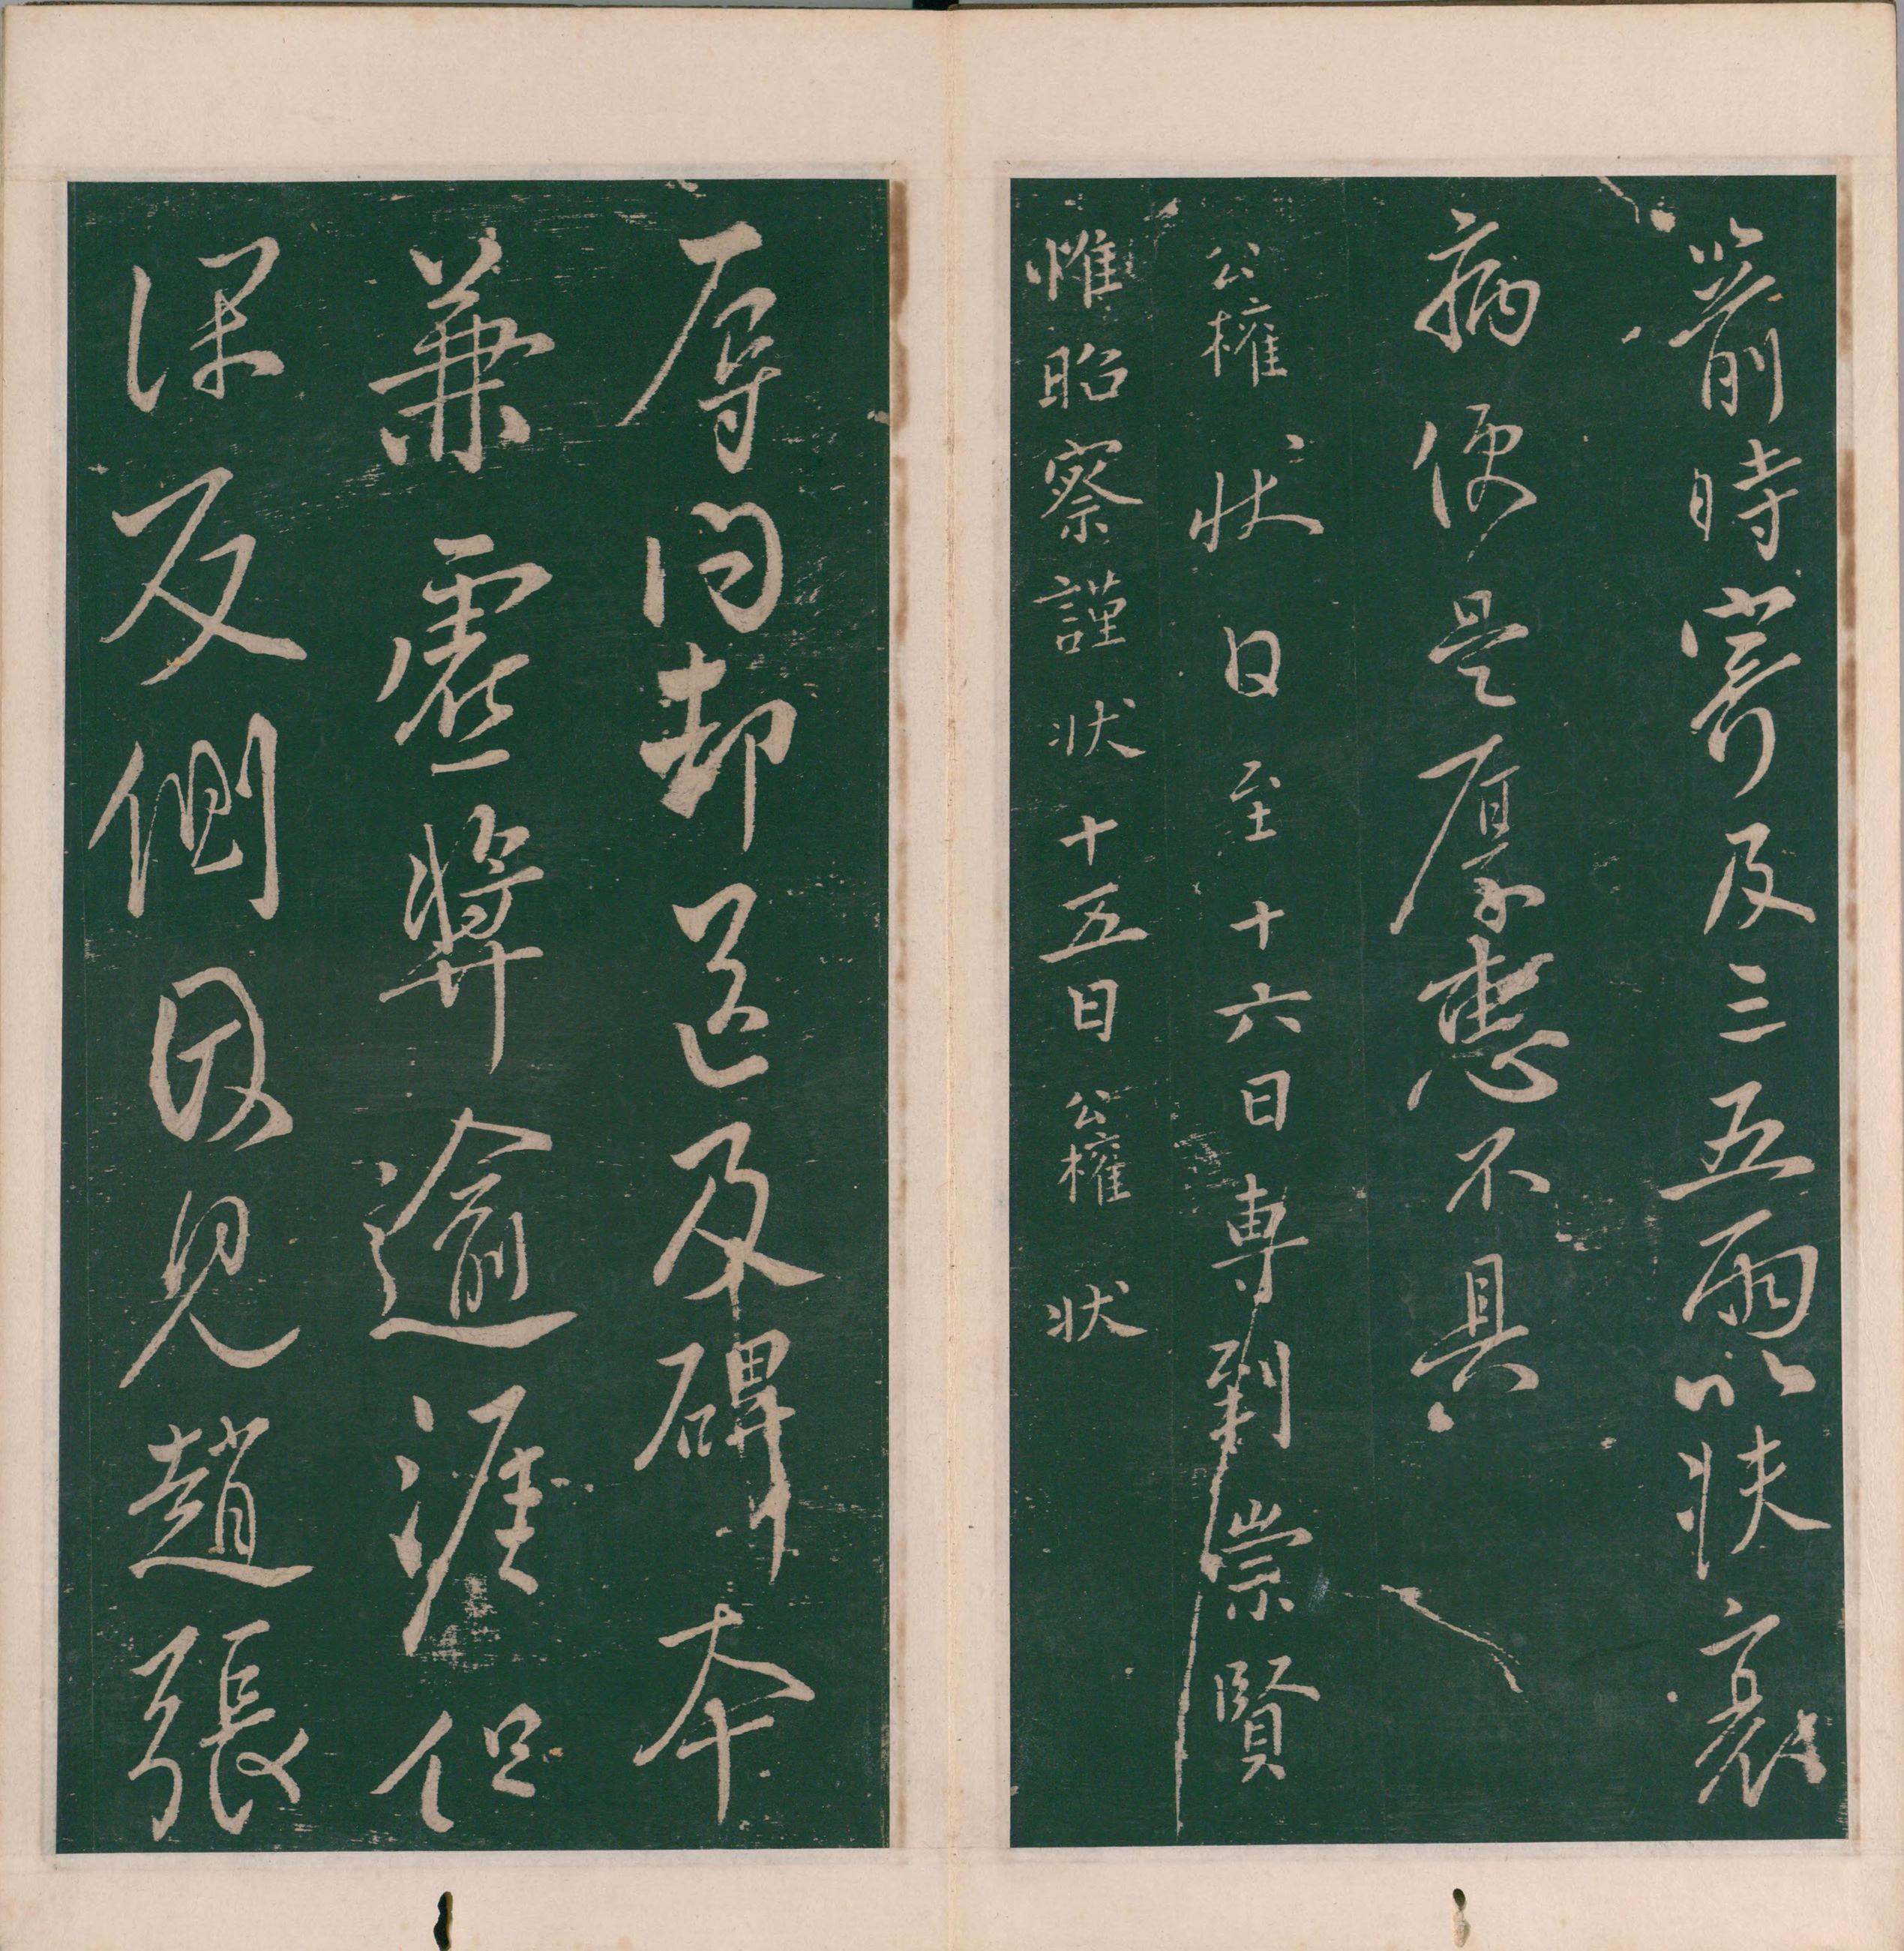 箭時寄及三五兩以扶衰
病便是厚惠不具
公權狀日至十六日專到崇賢
惟昭察謹狀十五日公權狀
辱問却送及碑本
兼虛奬逾涯但
深反側因見趙張